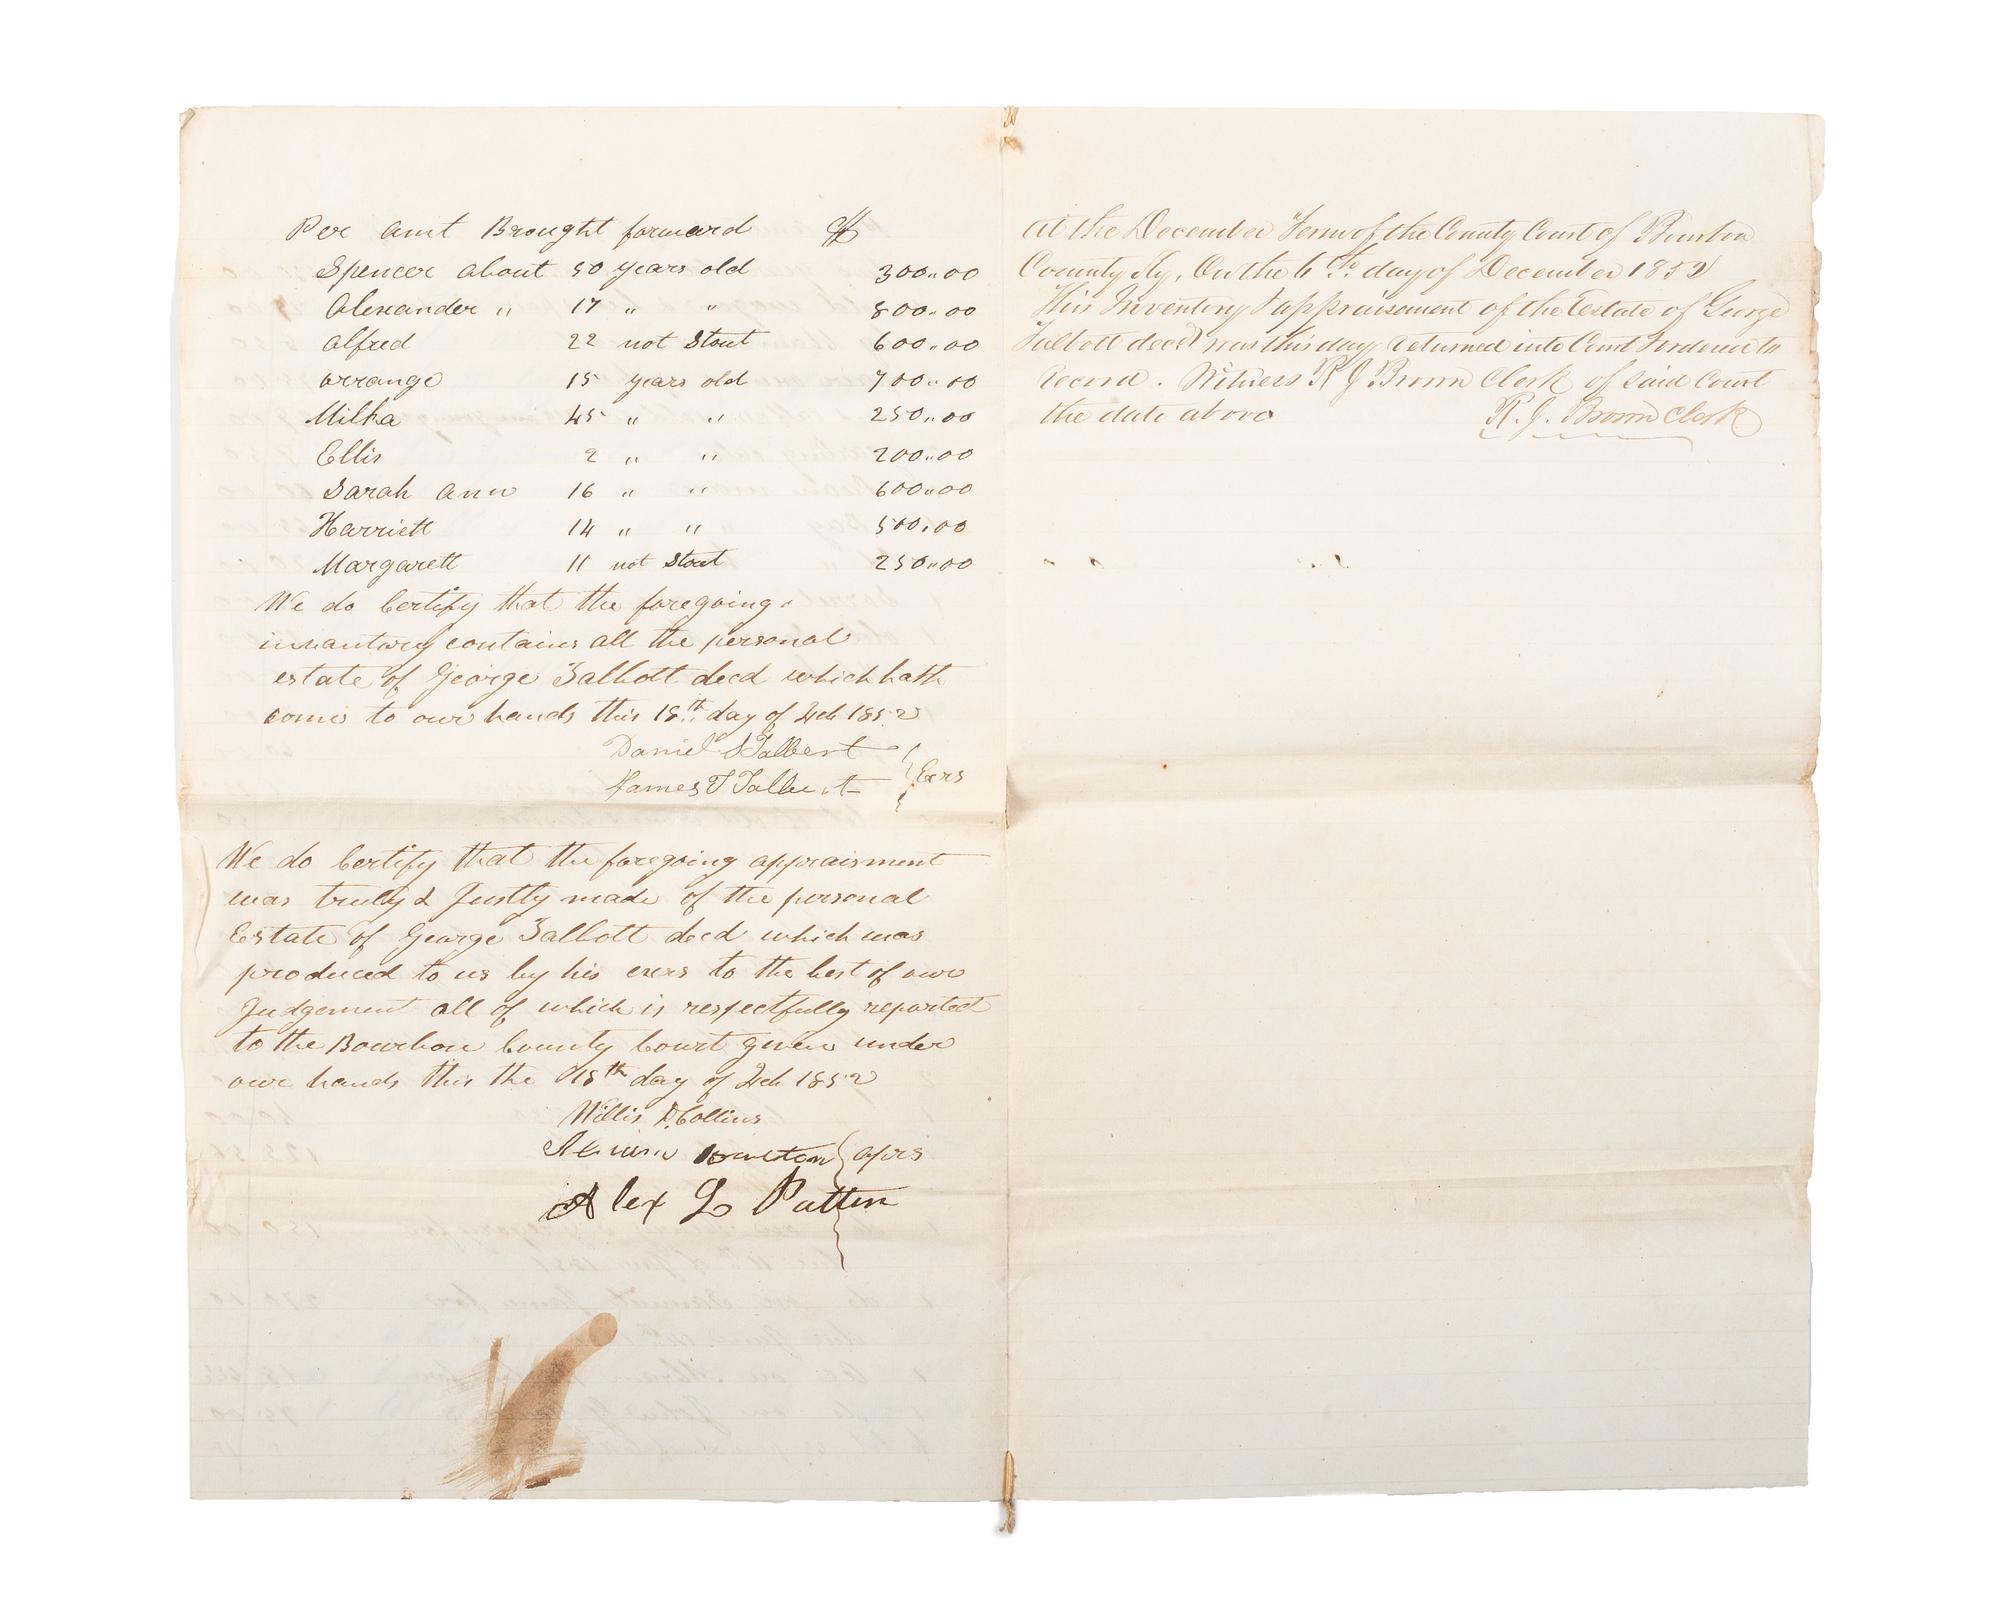 Per amt Brought forward $
Spencer about 50 years old 300..00
Alexander " 17 " " 800..00
Alfred 22 not Stout 600..00
Orrange 15 years old 700..00
Milka 45 " " 250..00
Ellis 2 " " 200..00
Sarah Ann 16 " " 600..00
Harriett 14 " " 500..00
Margarett 11 not Stout 250..00
We do Certify that the foregoing
invantory contains all the personal
estate of George Talbott decd which hath
come to our hands this 18th day of Feb 1852
Daniel Talbert
James T Talbert } Exrs
We do Certify that the foregoing appraisment
was truly & Justly made of the personal
Estate of George Talbott decd which was
produced to us by his exrs to the best of our
Judgement all of which is respectfully reported
to the Bourbon County Court given under
our hands this the 18th day of Feb 1852
Willis D. Collins
} aprs
Alex L Patten
At the December Term of the County Court of Bourbon
County Ky, On the 6th day of December 1852
This Inventory & appraisement of the Estate of George
Talbott decd was this day returned into Court & ordered to
Record. Witness R J Brown Clerk of said Court
the date above R. J. Brown Clerk